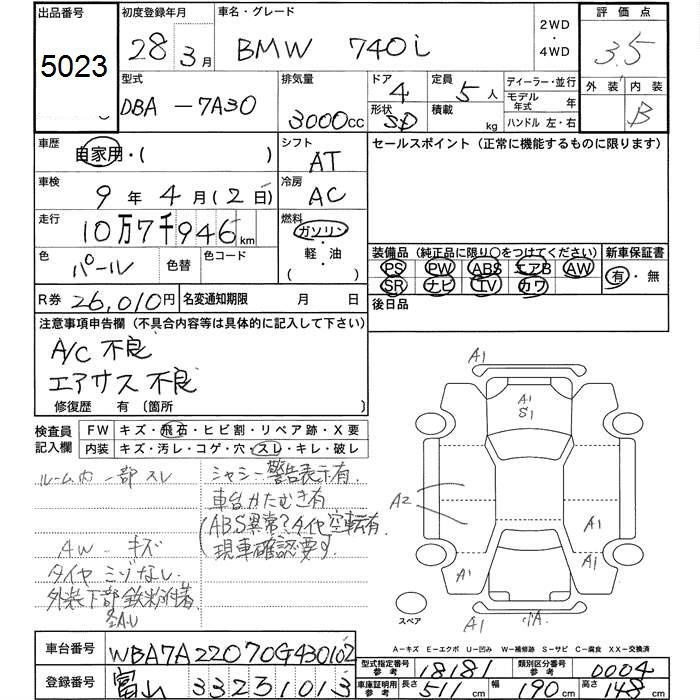 出品番号 初度登録年月 車名・グレード 2WD・4WD 評価点
5023 28 3月 BMW 740i 3.5
型式 排気量 ドア 定員 ディーラー・並行 外装 内装
DBA-7A30 3000cc 4 5人 モデル年式 年 B
形状 SD 積載 kg ハンドル 左・右
車歴 自家用・( ) シフト AT セールスポイント(正常に機能するものに限ります)
車検 9年4月(2日) 冷房 AC
走行 10万7千946km 燃料 ガソリン・軽・油( )
色 パール 色替 色コード
装備品(純正品に限り○をつけてください) 新車保証書
PS PW ABS エアB AW 有・無
SR ナビ TV カワ
R券 26,010円 名変通知期限 月 日 後日品
注意事項申告欄(不具合内容等は具体的に記入して下さい)
A/C 不良
エアサス 不良
修復歴 有〔箇所 〕
検査員記入欄 FW キズ・飛石・ヒビ割・リペア跡・X要
内装 キズ・汚レ・コゲ・穴・スレ・キレ・破レ
ルーム内 一部スレ
シャシー警告表示有
車台かたむき有
(ABS異常?タイヤ空転有
現車確認要す
AW キズ
タイヤ ミゾなし
外装下部鉄粉付着
A1
A1
S1
A2
A1
A1
A1
スペア
A-キズ E-エクボ U-凹み W-補修跡 S-サビ C-腐食 XX-交換済
車台番号 WBA7A22070G430102
型式指定番号参考 18181 類別区分番号参考 0004
登録番号 富山 332 3 1013
車庫証明用参考 長さ 511cm 幅 190cm 高さ 148cm